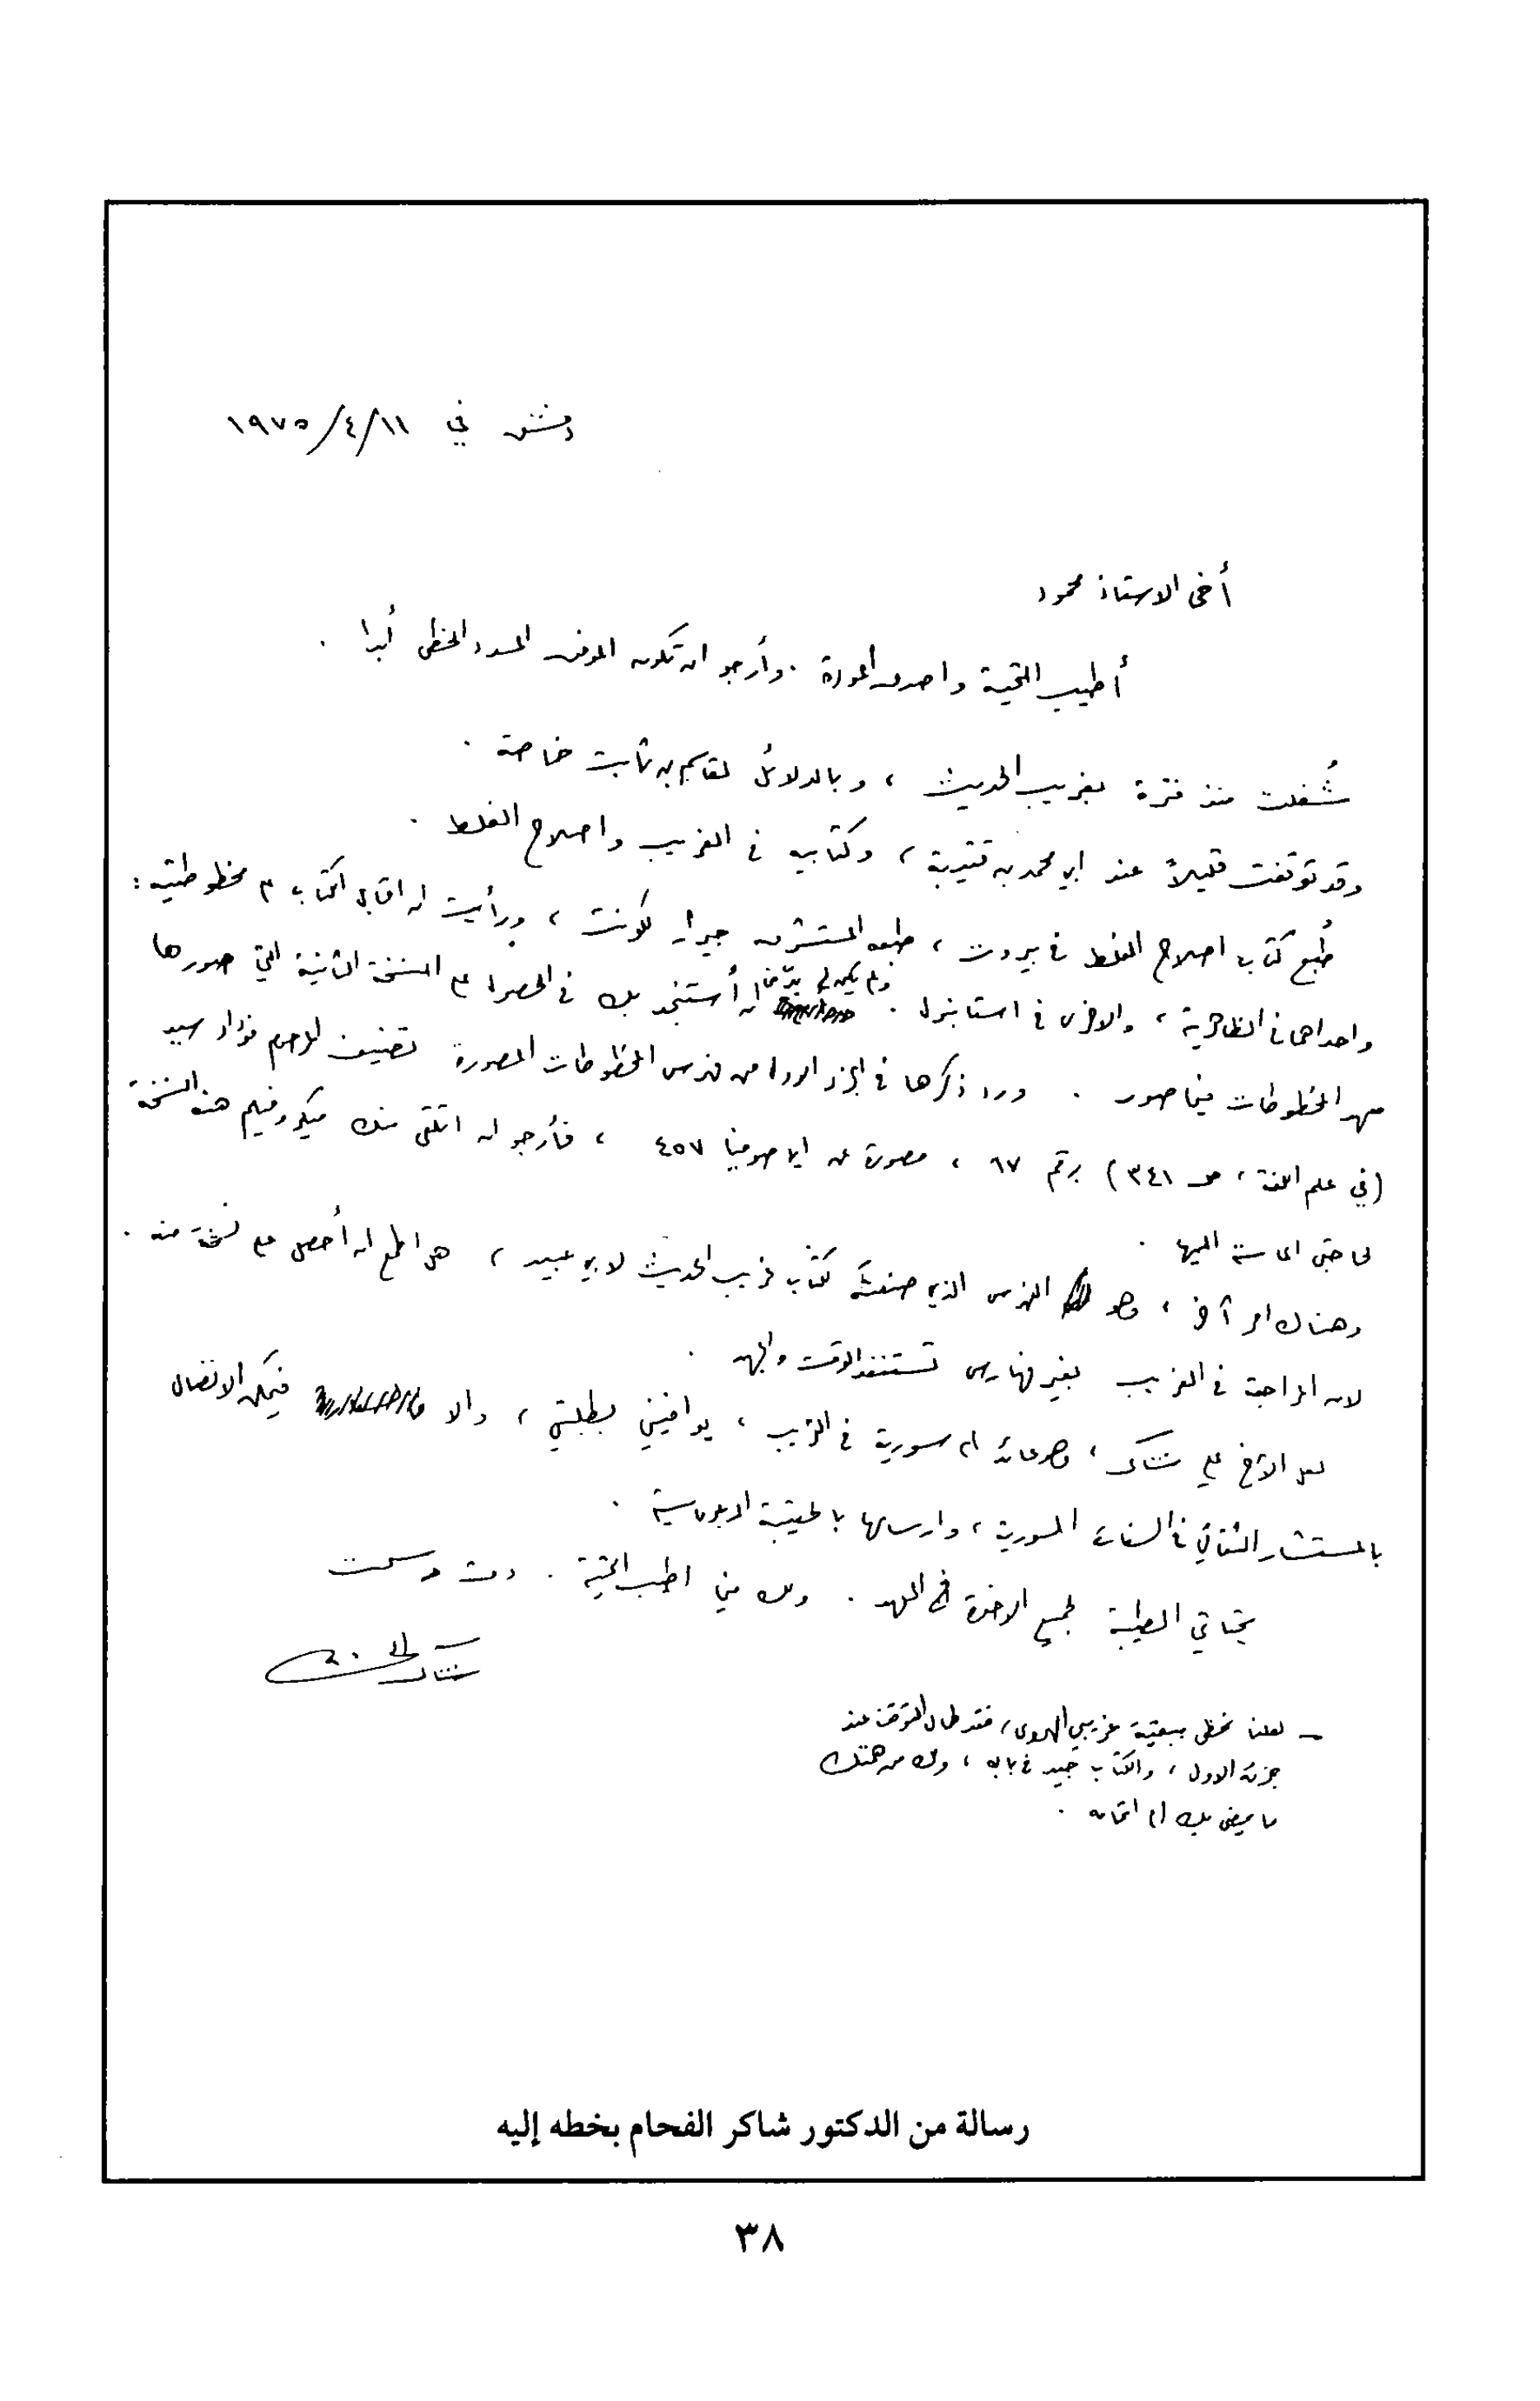 دمشق في ١١/٤/١٩٧٥
أخي الاستاذ محمود
أطيب التحية واصدق المودة . وأرجو ان تكون الموفق المسدد الخطى أبدا .
شُغلت منذ فترة بغريب الحديث ، وبالدلائل لقاسم بن ثابت خاصة .
وقد توقفت قليلاً عند ابي محمد بن قتيبة ، وكتابيه في الغريب واصلاح الغلط .
طُبع كتاب اصلاح الغلط في بيروت ، طبعه المستشرق جيرار لكونت ، ورأيت ان اقابل الكتاب بمخطوطتيه :
واحداهما في الظاهرية ، والاخرى في استانبول . ولم يكن لي بدّ من ان أستنجد بك في الحصول على النسخة الثانية التي صورها
معهد المخطوطات فيما صور . ورد ذكرها في الجزء الاول من فهرس المخطوطات المصورة تصنيف المرحوم فؤاد سيد
(في علم اللغة ، ص ٣٤١) برقم ٦٧ ، مصورة عن ايا صوفيا ٤٥٧ ، فأرجو ان اتلقى منك ميكروفيلم هذه النسخة
لحاجتي الماسة اليها .
وهناك امر آخر ، وهو الفهرس الذي صنعتَه لكتاب غريب الحديث لابي عبيد ، هل اطمع ان أحصل على نسخة منه .
لان المراجعة في الغريب بغير فهارس تستنفد الوقت والجهد .
لعل الأخ علي شتاك ، وهو عائد الى سورية في القريب ، يوافيني بطلبتي ، والا فيمكن الاتصال
بالمستشار الثقافي في السفارة السورية ، وارسالها بالحقيبة الدبلوماسية .
تحياتي الطيبة لجميع الاخوة في المعهد . ولك مني اطيب التحية . دمت وسلمت
شاكر الفحام
– لعلنا نحظى ببقية غريبي الهروي ، فقد طال التوقف عند
جزئه الاول ، والكتاب جيد في بابه ، ولك من همتك
ما يمضي بك الى اتمامه .
رسالة من الدكتور شاكر الفحام بخطه إليه
٣٨